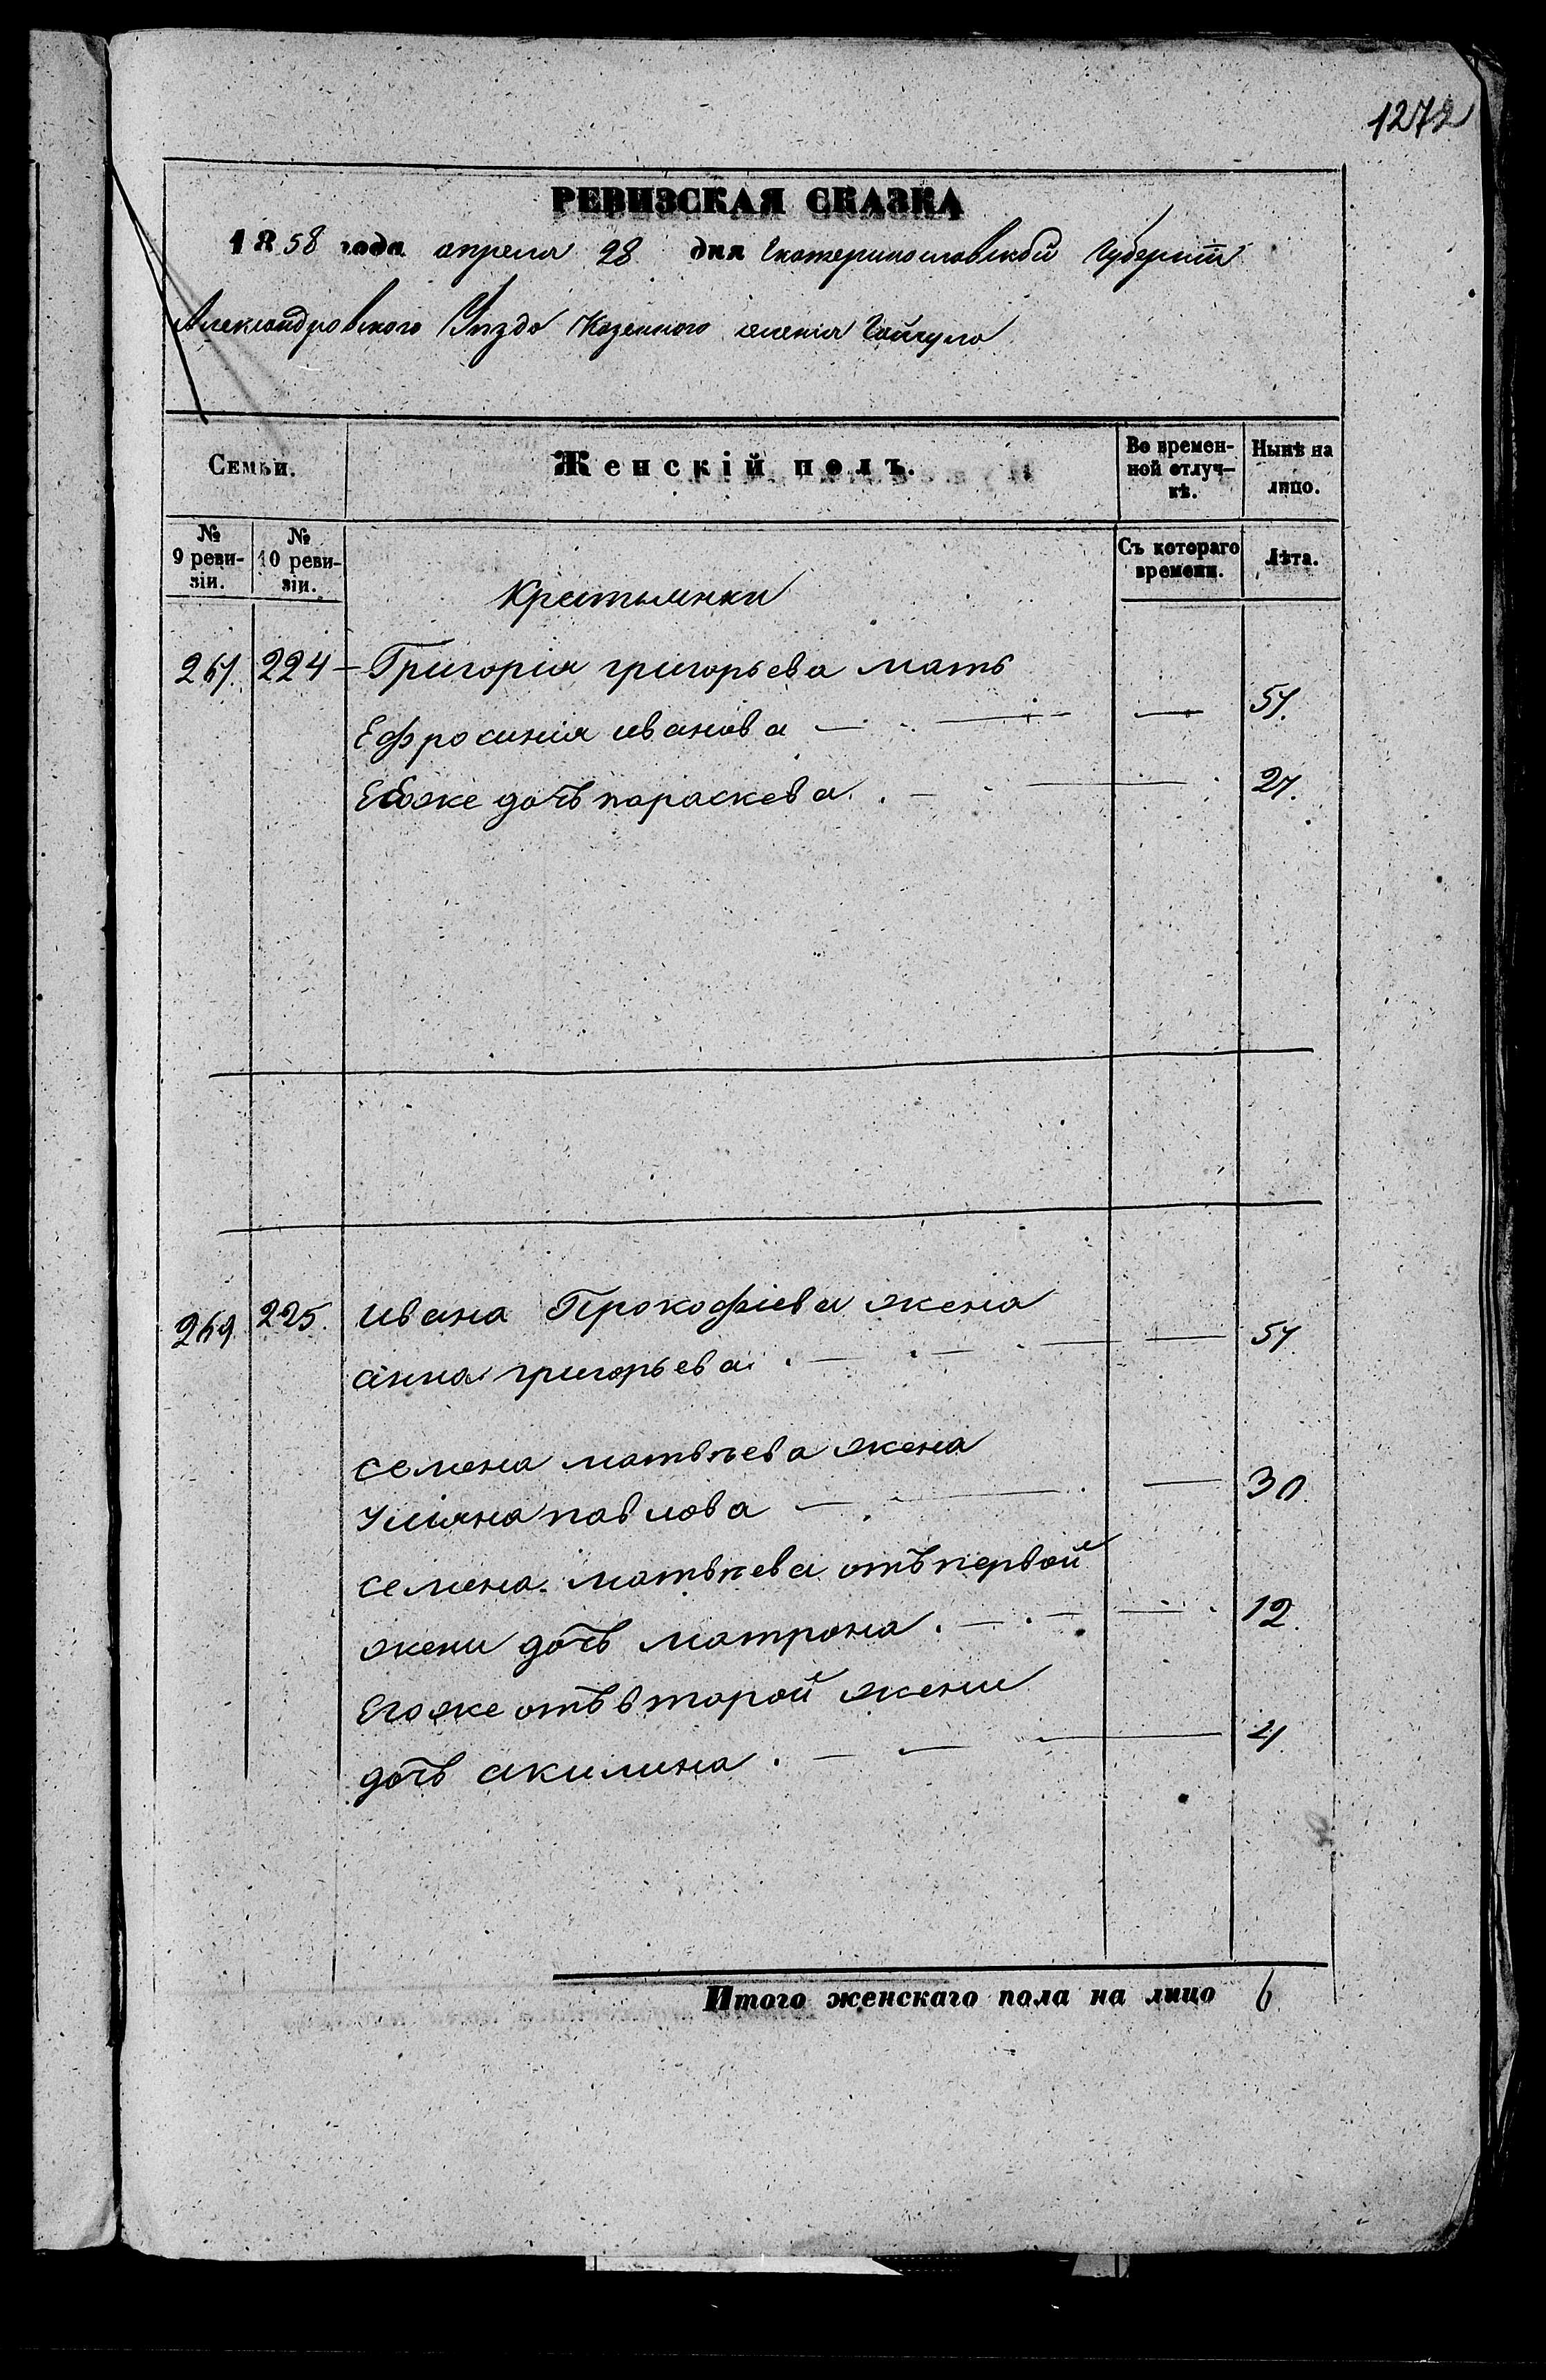 1272
РЕВИЗСКАЯ СКАЗКА
1858 года апреля 28 дня Екатеринославской Губерніи
Александровского Уѣзда Казенного селенія Гайчула
Семьи.
Женскій полъ.
Во времен-
ной отлуч-
кѣ.
Нынѣ на
лицо.
№
9 реви-
зіи.
№
10 реви-
зіи.
Съ котораго
времени.
Лѣта.
Крестьянки
267. 224 - Григорія григорьева мать
Ефросинія иванова — — 57.
Еѣоже дочь параскева — 27.
269 225. Ивана Прокофіева жена
анна григорьева — — 57
семена матвѣева жена
Уліяна павлова — — 30
семена матвѣева отъ первой
жени дочь матрона — — 12.
Егоже отъ второй жени
дочь акилина — — 4
Итого женскаго пола на лицо 6